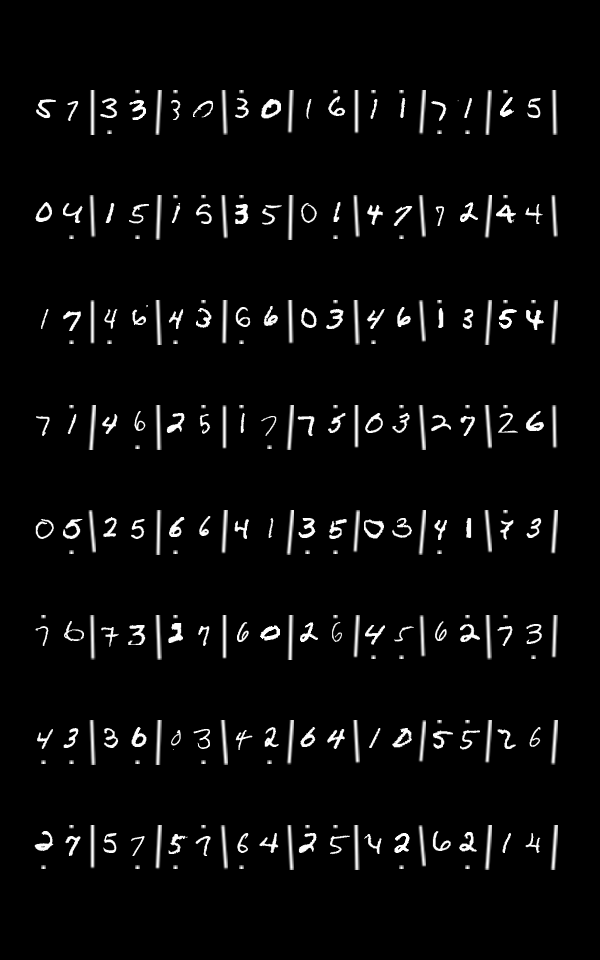 5 7 | 3̣ 3̇ | 3̇ 0 | 3̇ 0 | 1 6̇ | 1̇ 1̇ | 7̣ 1̣ | 6̇ 5 |
0 4̣ | 1 5̣ | 1̇ 5̇ | 3 5 | 0 1̇ | 4 7̣ | 7 2 | 4̇ 4 |
1 7̣ | 4̣ 6 | 4̣ 3̇ | 6̣ 6 | 0 3̇ | 4̣ 6 | 1̇ 3 | 5̇ 4̇ |
7 1̇ | 4 6̣ | 2 5̇ | 1 7̣ | 7 5̇ | 0 3̇ | 2 7̇ | 2̇ 6 |
0 5̣ | 2 5 | 6̣ 6 | 4 1 | 3̣ 5̣ | 0 3 | 4̣ 1 | 7̇ 3 |
7̇ 6 | 7 3 | 2̇ 7 | 6 0 | 2 6̇ | 4̣ 5̣ | 6 2̇ | 7̇ 3̣ |
4̣ 3̣ | 3 6̣ | 0 3̣ | 4 2̣ | 6 4 | 1 0 | 5̇ 5̇ | 2 6 |
2̣ 7̇ | 5 7̣ | 5̣ 7̇ | 6̣ 4 | 2̇ 5̇ | 4 2̣ | 6 2̣ | 1 4 |